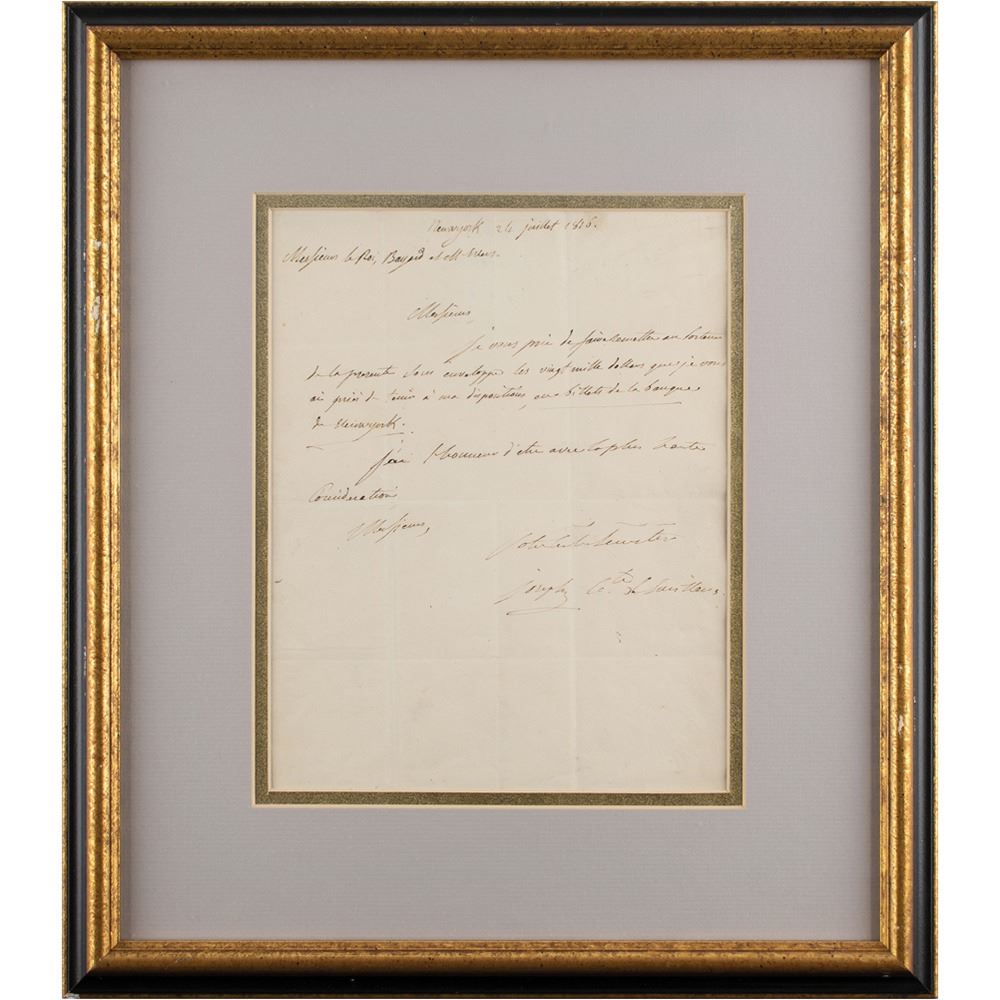 Newyork 24 juillet 1816.
Messieurs le Roi, Bayard et
Messieurs,
je vous prie de faire remettre au porteur
de la presente sous enveloppe les vingt mille dollars que je vous
ai prié de tenir à ma disposition, en billets de la banque
de Newyork.
j'ai l'honneur d'etre avec la plus haute
Considération
Messieurs,
Votre
joseph Cte de Survilliers